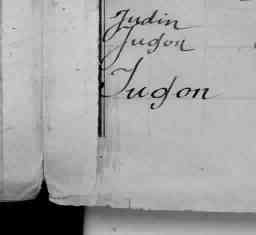 Judin
Jugon
Jugon